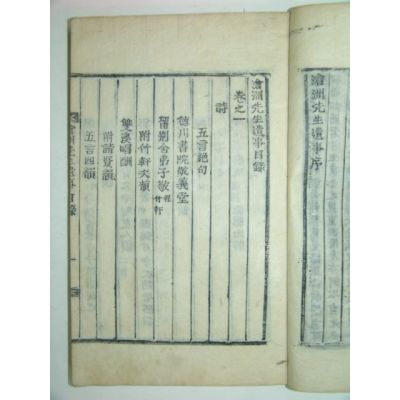 滄洲先生遺事序
滄洲先生遺事目錄
卷之一
詩
五言絶句
德川書院敬義堂
留別金弟子敬 竹軒
附竹軒次韻
雙溪唱酬
附諸賢韻
五言四韻
滄洲先生遺事目錄 一